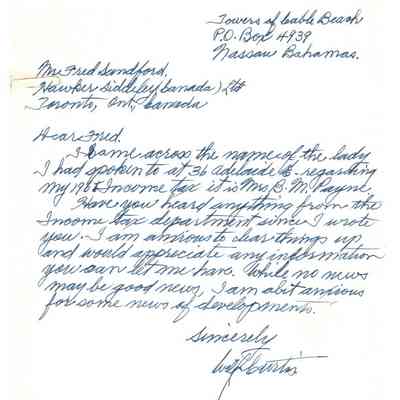 Towers of Cable Beach
P.O. Box 4939
Nassau Bahamas.
Mr Fred Sandford.
Hawker Siddeley (Canada) Ltd
Toronto, Ont, Canada
Dear Fred.
I came across the name of the lady
I had spoken to at 36 Adelaide E. regarding
my Income tax it is Mrs B. M. Payne,
Have you heard anything from the
Income tax department since I wrote
you. I am anxious to clear things up,
and would appreciate any information
you can let me have. While no news
may be good news, I am a bit anxious
for some news of developments.
Sincerely
Curtis